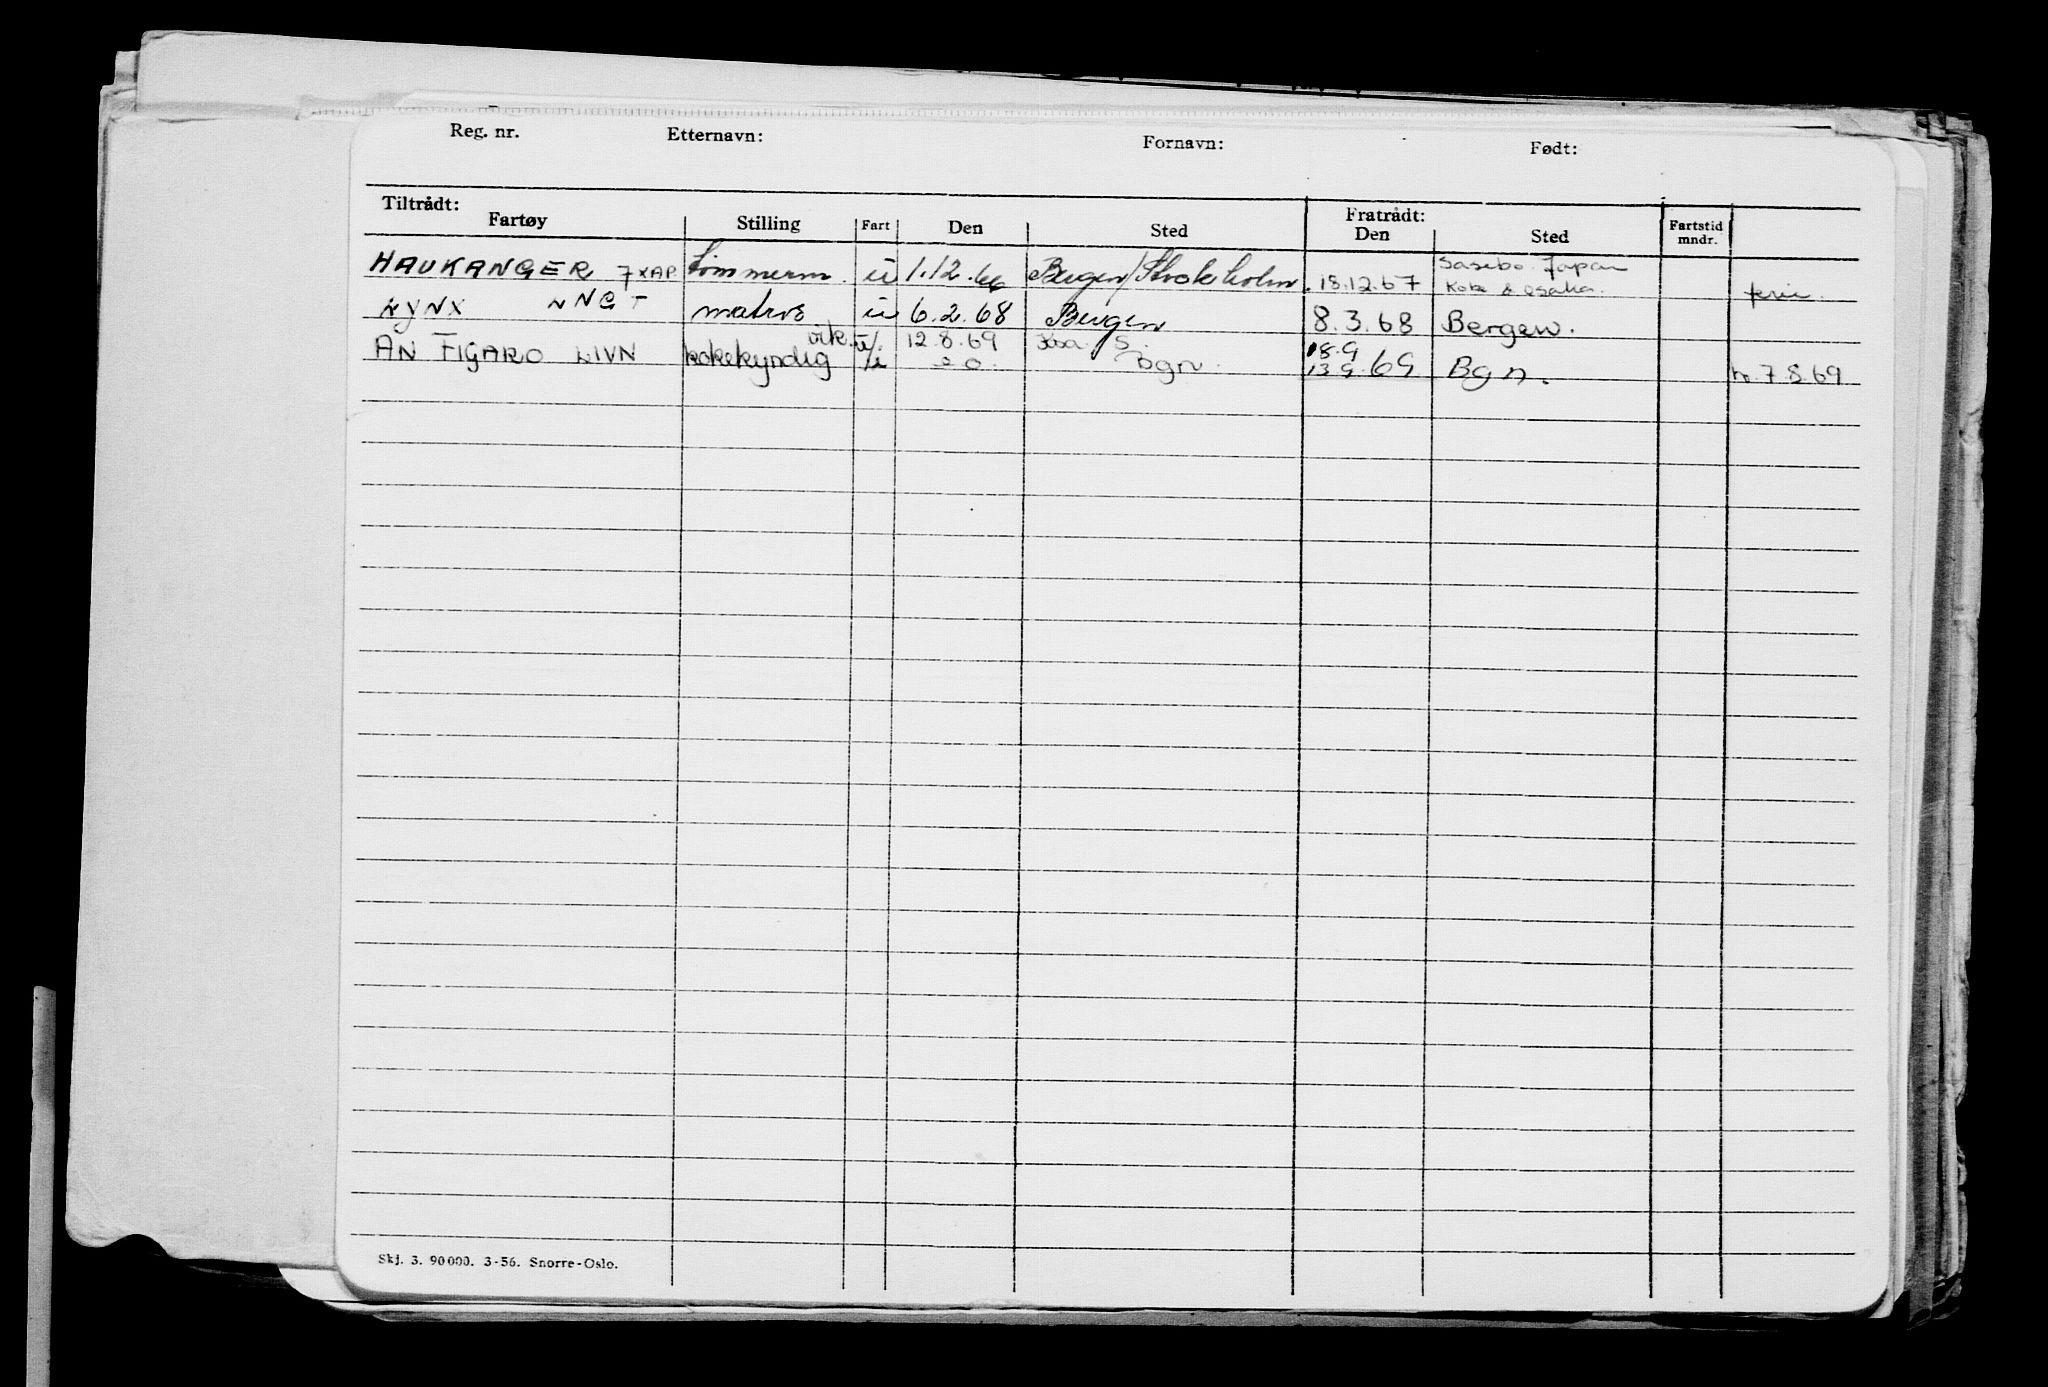 Reg. nr. Etternavn: Fornavn: Født:
Tiltrådt: Fratrådt:
Fartøy Stilling Fart Den Sted Den Sted Fartstid mndr.
HAUKANGER tømmerm. u 1.12.66 Bergen/Stockholm 18.12.67 Sasebo Japan
Kobe & Osaka. ferie.
LYNX LNGT matros u 6.2.68 Bergen 8.3.68 Bergen.
vik. 12.8.69 18.9
AN FIGARO LIVN kokekyndig Bgn. 13.9.69 Bgn. 7.8.69
Skj. 3. 90 000. 3-56. Snorre-Oslo.